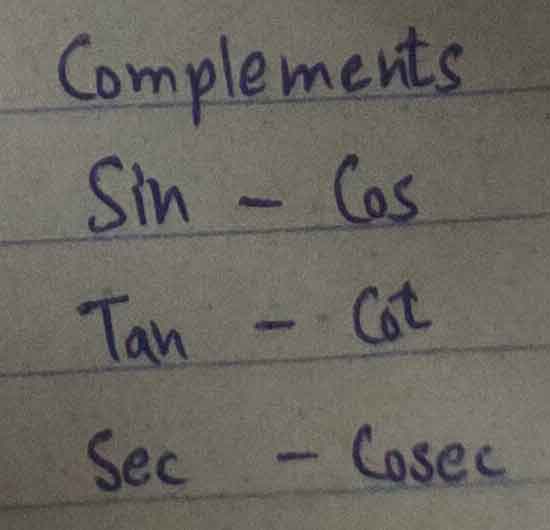 Complements
Sin - Cos
Tan - Cot
Sec - Cosec